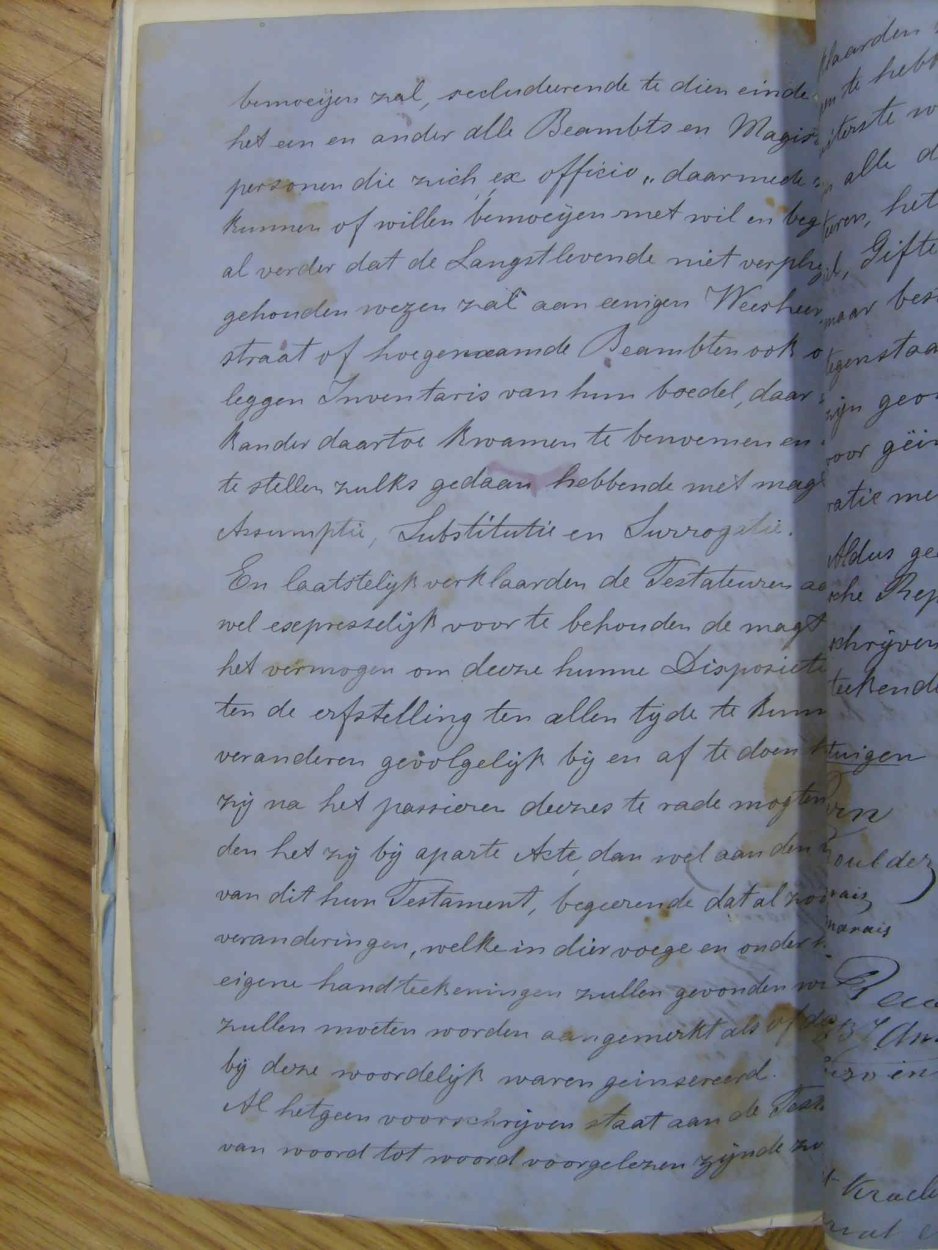 bemoeijen zal, secludeerende te dien einde
het een en ander alle Beambts en Magis
personen die zich ex officio „ daarmede
kunnen of willen bemoeijen met wil en beg
al verder dat de Langstlevende niet verpligt
gehouden wezen zal aan eenigen Weesheer
straat of hoegenaamde Beambten ook o
leggen Inventaris van hun boedel, daar
kander daartoe kwamen te benoemen en
te stellen zulks gedaan hebbende met magt
Assumptie, Substitutie en Surrogatie.
En laatstelijk verklaarden de Testateuren aa
wel expresselijk voor te behouden de magt
het vermogen om deeze hunne Dispositie
ten de erfstelling ten allen tijde te kunn
veranderen gevolgelijk bij en af te doen
zij na het passieren deezes te rade mogten
den het zij bij aparte Acte, dan wel aan den
van dit hun Testament, begeerende dat al zo
veranderingen, welke in dier voege en onder
eigene handteekeningen zullen gevonden wo
zullen moeten worden aangemerkt als of
bij deze woordelijk waren geinsereerd.
Al hetgeen voorschrijven staat aan de Test
van woord tot woord voorgelezen zijnde zo
klaarden
te heb
uiterste w
alle d
teren, het
Gifte
maar best
tegenstaa
zijn geor
voor geïn
ratie me
Aldus ge
sche Rep
schrijven
teekend
tuigen
oulder
rais
marais
kracht